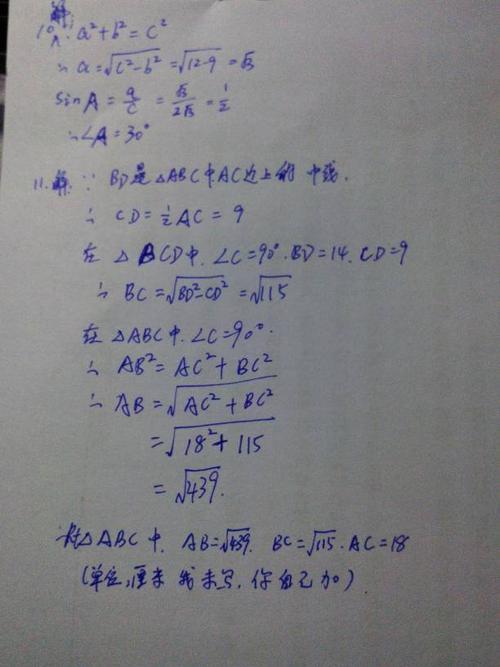 解
10. ∵ a²+b²=c²
∴ a=√c²-b² =√12-9 =√3
sinA = a/c = √3/2√3 = 1/2
∴∠A=30°
11.解. ∵ BD是△ABC中AC边上的中线.
∴ CD=½AC=9
在△BCD中.∠C=90°.BD=14.CD=9
∴ BC=√BD²-CD² =√115
在△ABC中.∠C=90°.
∴ AB²=AC²+BC²
∴ AB=√AC²+BC²
=√18²+115
=√439.
△ABC中. AB=√439. BC=√115.AC=18
(单位:厘米 我未写.你自己加).